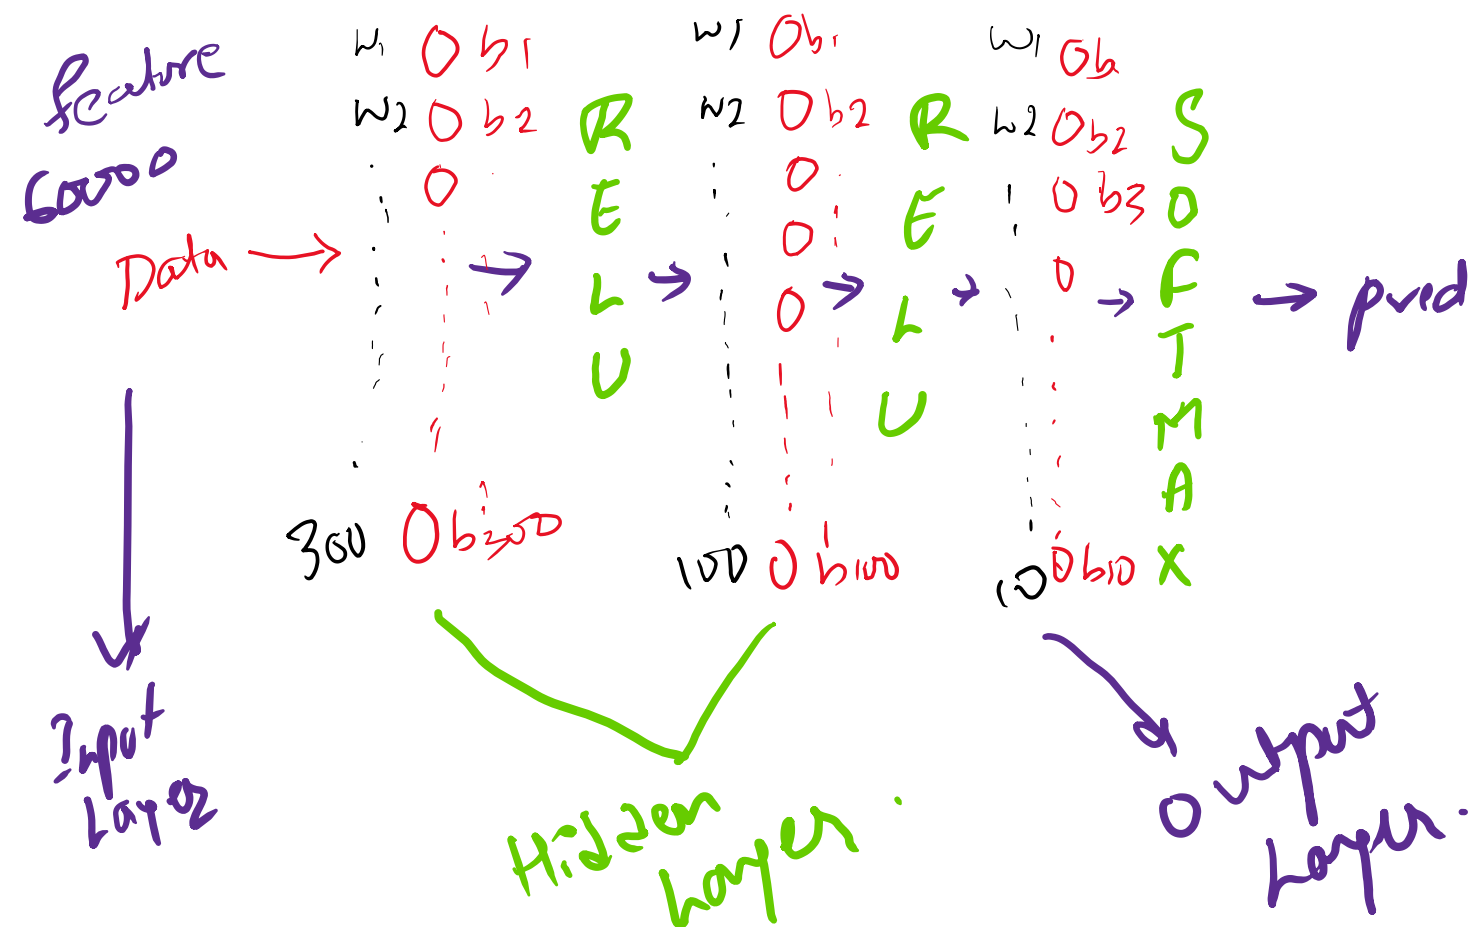 feature
60000
Data
Input
Layer
w1 O b1
w2 O b2
O
300 O b300
RELU
w1 O b1
w2 O b2
O
O
O
100 O b100
RELU
w1 O b
w2 O b2
O b3
O
10 O b10
SOFTMAX
pred
Hidden
Layer.
Output
Layer.